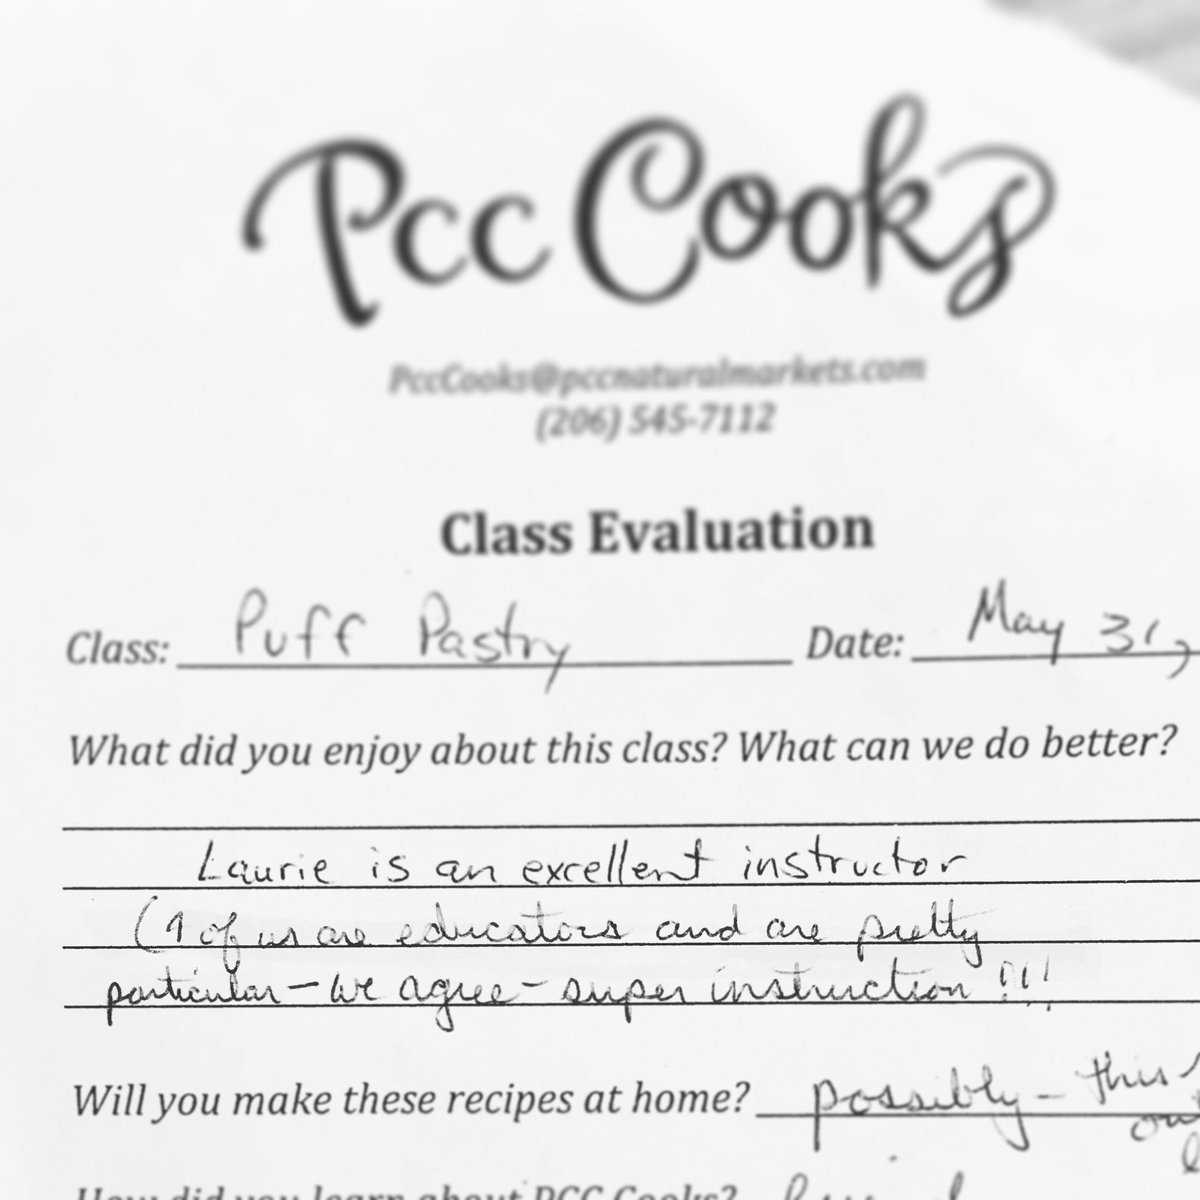 Pcc Cooks
PccCooks@pccnaturalmarkets.com
(206) 545-7112
Class Evaluation
Class: Puff Pastry Date: May 31,
What did you enjoy about this class? What can we do better?
Laurie is an excellent instructor
(9 of us are educators and are pretty
particular - we agree - super instruction !!!
Will you make these recipes at home? possibly - this
How did you learn about PCC Cooks?